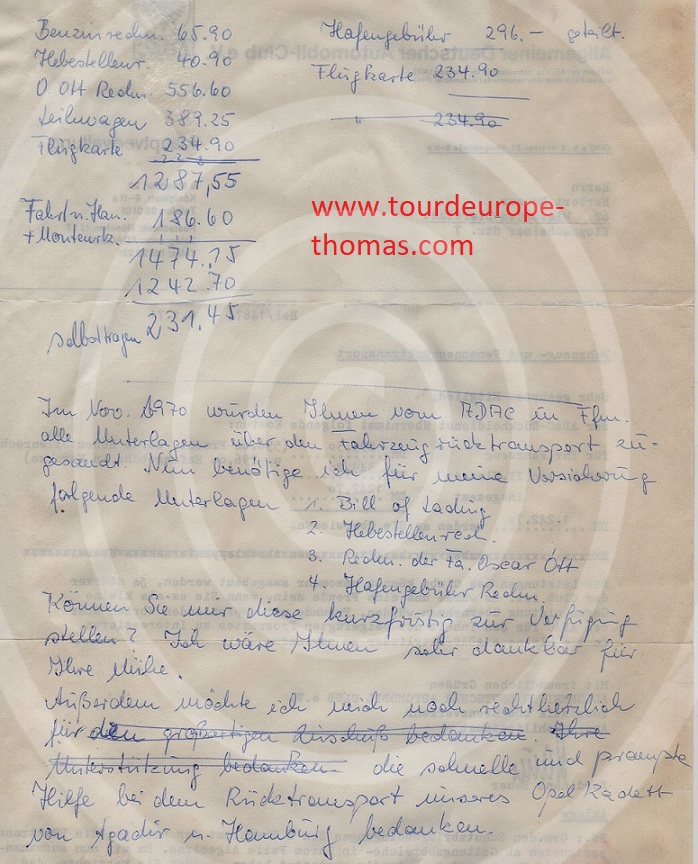 Benzinrechn. 65.90
Hebestellenr. 40.90
O Ott Rechn. 556.60
Leihwagen 389.25
Flugkarte 234.90
1287,55
Fahrt n. Han. 186.60
+ Monteurk.
1474.15
1242.70
selbsttragen 231.45
Hafengebühr 296.— geteilt.
Flugkarte 234.90
" 234.90
www.tourdeurope-
thomas.com
Im Nov. 1970 wurden Ihnen vom ADAC in Ffm.
alle Unterlagen über den Fahrzeugrücktransport zu-
gesandt. Nun benötige ich für meine Versicherung
folgende Unterlagen 1. Bill of Lading
2. Hebestellenrech.
3. Rechn. der Fa. Oscar Ott
4. Hafengebühr Rechn.
Können Sie mir diese kurzfristig zur Verfügung
stellen? Ich wäre Ihnen sehr dankbar für
Ihre Mühe.
Außerdem möchte ich mich noch recht herzlich
für den großartigen Zuschuß bedanken Ihre
Unterstützung bedanken. die schnelle und prompte
Hilfe bei dem Rücktransport unseres Opel Kadett
von Agadir n. Hamburg bedanken.